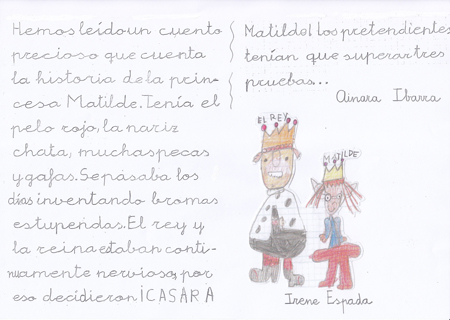 Hemos leído un cuento
precioso que cuenta
la historia de la prin-
cesa Matilde. Tenía el
pelo rojo, la nariz
chata, muchas pecas
y gafas. Se pasaba los
días inventando bromas
estupendas. El rey y
la reina estaban conti-
nuamente nerviosos, por
eso decidieron ¡CASAR A
Matilde! Los pretendientes
tenían que superar tres
pruebas...
Ainara Ibarra
EL REY
MATILDE
Irene Espada